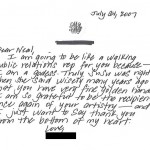 July 24, 2007
Dear Neal,
I am going to be like a walking
public relations rep for you because—
I am a godess. Truly SuSu was right
when she said wisely many years ago
that you have very fine golden hands.
I am so grateful to be the recipient
once again of your artistry— and
I just want to say thank you
from the bottom of my heart.
Love,